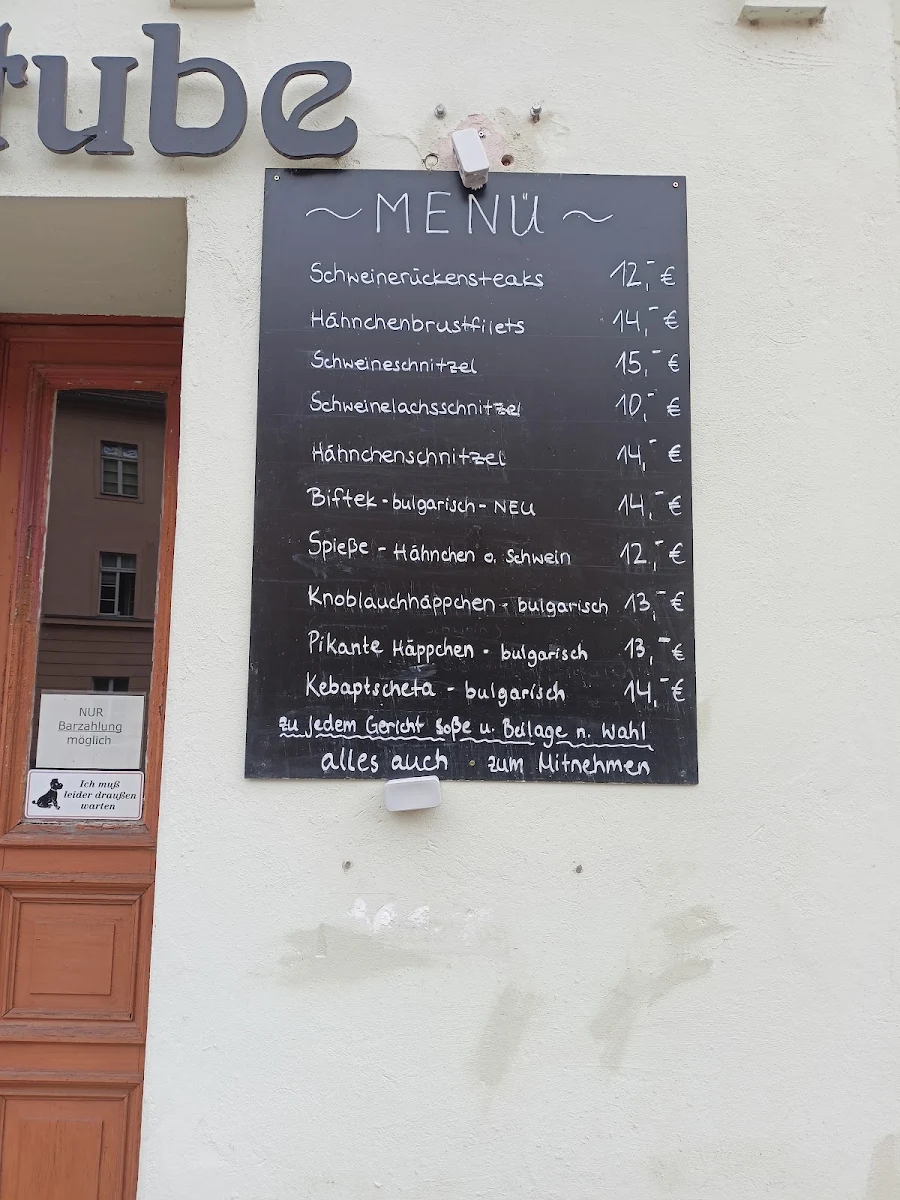 tube
~ MENÜ ~
Schweinerückensteaks 12,- €
Hähnchenbrustfilets 14,- €
Schweineschnitzel 15,- €
Schweinelachsschnitzel 10,- €
Hähnchenschnitzel 14,- €
Biftek - bulgarisch - NEU 14,- €
Spieße - Hähnchen o. Schwein 12,- €
Knoblauchhäppchen - bulgarisch 13,- €
Pikante Häppchen - bulgarisch 13,- €
Kebaptscheta - bulgarisch 14,- €
zu jedem Gericht Soße u. Beilage n. Wahl
alles auch zum Mitnehmen
NUR
Barzahlung
möglich
Ich muß
leider draußen
warten